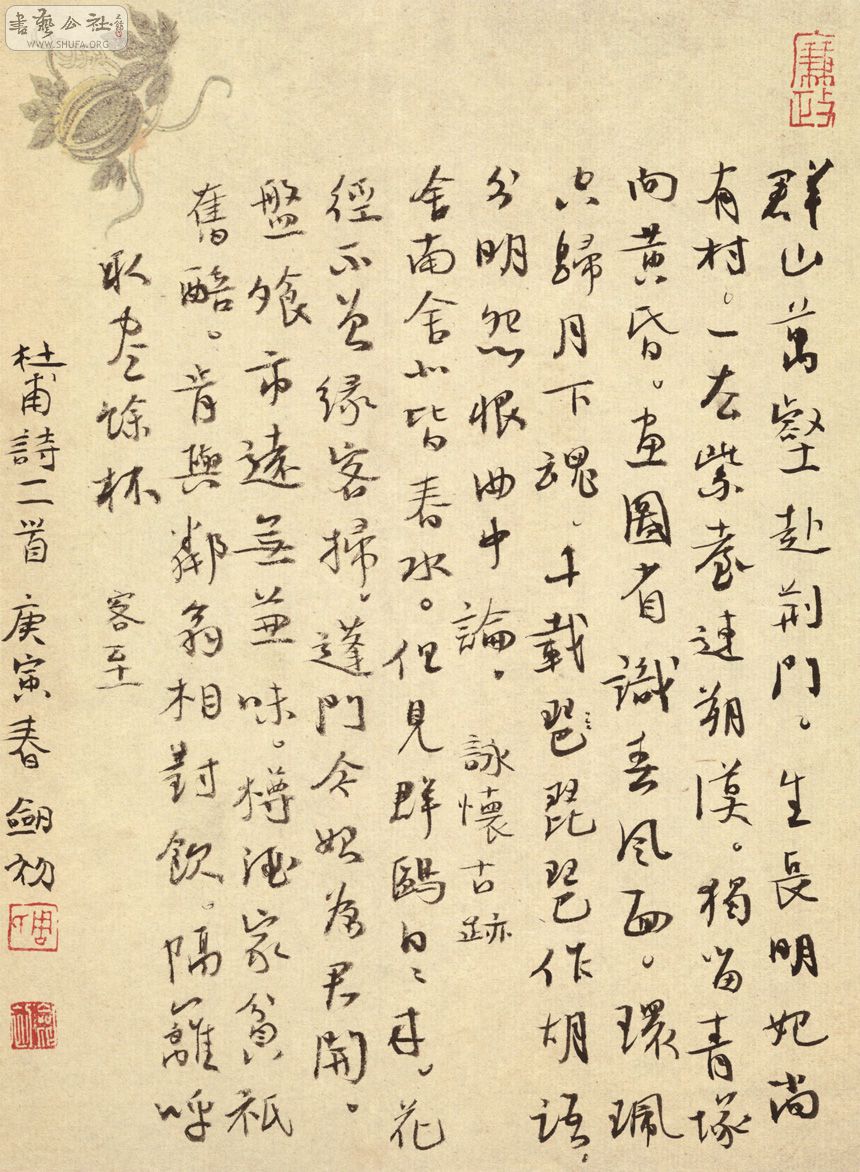 書藝公社
WWW.SHUFA.ORG
廉政
群山萬壑赴荊門。生長明妃尚
有村。一去紫臺連朔漠。獨留青塚
向黃昏。画圖省識春风面。環珮
空歸月下魂。千載琶琵琶作胡語，
分明怨恨曲中論。詠懷古跡
舍南舍北皆春水。但見群鷗日々来。花
徑不曾緣客掃。蓬門今始為君開。
盤飧市遠無兼味。樽酒家貧衹
舊醅。肯與鄰翁相對飲。隔籬呼
取尽餘杯 客至
杜甫詩二首 庚寅春 劒初
周